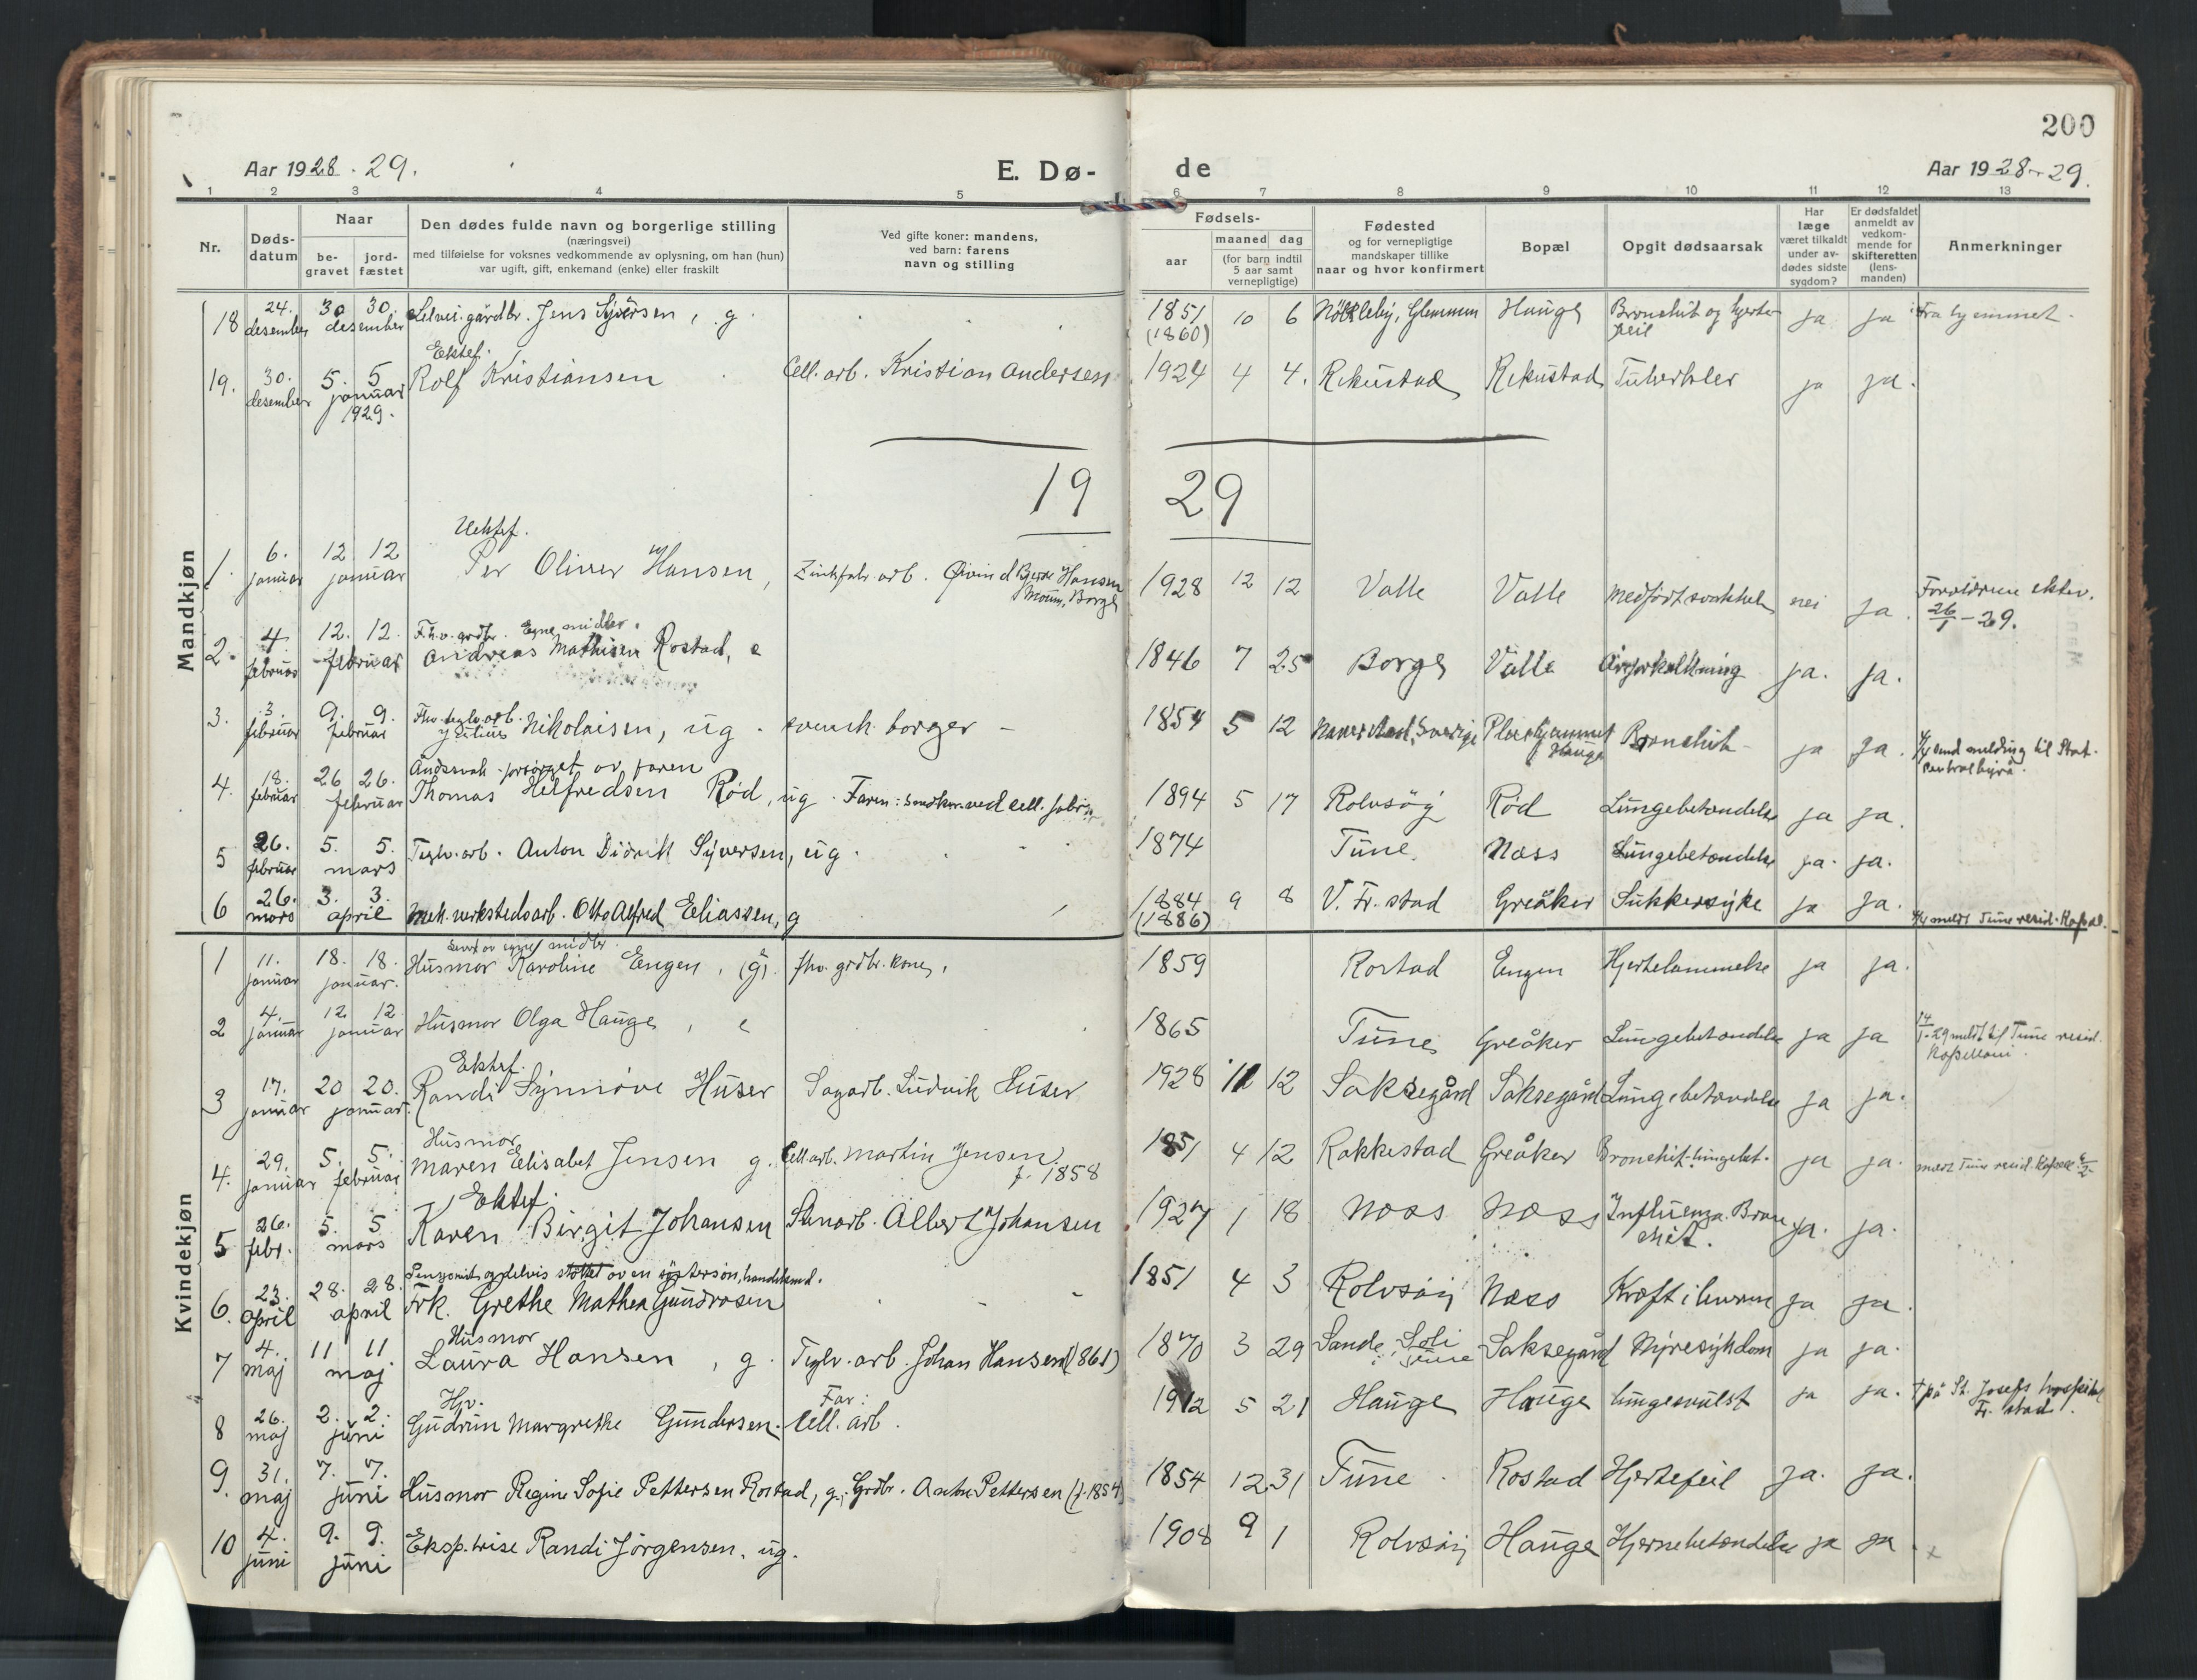 200
Aar 1928 . 29.
E. Dø-
de
Aar 1928 - 29.
1 2 3 4 5 6 7 8 9 10 11 12 13
Nr.
Døds-
datum
Naar
be-
gravet
jord-
fæstet
Den dødes fulde navn og borgerlige stilling
(næringsvei)
med tilføielse for voksnes vedkommende av oplysning, om han (hun)
var ugift, gift, enkemand (enke) eller fraskilt
Ved gifte koner: mandens,
ved barn: farens
navn og stilling
Fødsels-
aar
maaned dag
(for barn indtil
5 aar samt
vernepligtige)
Fødested
og for vernepligtige
mandskaper tillike
naar og hvor konfirmert
Bopæl
Opgit dødsaarsak
Har
læge
været tilkaldt
under av-
dødes sidste
sygdom?
Er dødsfaldet
anmeldt av
vedkom-
mende for
skifteretten
(lens-
manden)
Anmerkninger
Mandkjøn
18 24. desember 30 30. desember gårdbr. Jens Syversen, g. 1851 (1860) 10 6 Glemmen Hauge Bronchit og hjertefeil ja ja Fra hjemmet.
19. 30. desember 5. 5 januar 1929. Ektef. Rolf Kristiansen Cell. arb. Kristian Andersen 1924 4 4. Rekustad Rekustad Tuberkler ja ja.
19 29
1. 6. januar 12 12 januar Uektef. Per Oliver Hansen, Zinkfabr. arb. Øivind Bjerke Hansen Moum, Borge 1928 12 12 Valle Valle Medfødt svakhet nei ja. Forældrene ektev. 26/1 - 29.
2. 4. februar 12. 12. februar F.h.v. grdbr. Egne midler. Andreas Mathisen Rostad, e 1846 7 25 Borge Valle Åreforkalkning ja. ja.
3. 3. februar 9. 9. februar Fhv. teglv. arb. Julius Nikolaisen, ug. svensk borger - 1854 5 12 Naverstad, Sverige Pleiehjemmet Hauge Bronchit ja ja. send melding til Stat. sentralbyrå.
4. 18. februar 26 26. februar Åndssvak - forsørget av faren Thomas Helfredsen Rød, ug. Faren: ved cell. fabr. 1894 5 17 Rolvsøy Rød Lungebetændelse ja ja.
5 26. februar 5. 5. mars Teglv. arb. Anton Didrik Syversen, ug. 1874 Tune. Næss Lungebetændelse ja. ja.
6 26. mars 3. 3. april Mek. verkstedsarb. Otto Alfred Eliassen, g 1884 (1886) 9 8 V. Fr. stad Greåker Sukkersyke ja ja. meldt Tune resid. Kapel.
Kvindekjøn
1 11. januar 18. 18. januar. Levet av egne midler. Husmor Karoline Engen, (g). fhv. grdbr. kone. 1859 Rostad Engen Hjertelammelse ja ja.
2 4. januar 12 12 januar Husmor Olga Hauge, e 1865 Tune Greåker Lungebetændelse ja ja 14/1-29 meldt til Tune resid. Kapellani.
3 17. januar 20 20. januar. Ektef. Randi Synnøve Huser Sagarb. Ludvik Huser 1928 11 12 Saksegård Saksegård Lungebetændelse ja ja.
4. 29. januar 5. 5. februar Husmor Maren Elisabet Jensen g. Cell arb. Martin Jensen f. 1858 1851 4 12 Rakkestad Greåker Bronchit - lungebet. ja ja. meldt Tune resid. Kapell.
5 26. febr. 5. 5 mars Ektef. Karen Birgit Johansen Stenarb. Albert Johansen 1927 1 18 Næss Næss Influenza. Bronchit. ja. ja.
6. 23. april 28. 28. april Pensjonist og delvis støttet av en søstersøn, handelsmd. Frk. Grethe Mathea Gundrosen 1851 4 3 Rolvsøy Næss Kræft i leveren ja ja.
7 4. maj 11 11 maj Husmor Laura Hansen, g. Teglv. arb. Johan Hansen (1861) 1870 3 29 Sande, Soli Tune Saksegård Nyresykdom ja ja.
8 26. maj 2. 2. juni Hjv. Gudrun Margrethe Gundersen. Far: Cell. arb. 1912 5 21 Hauge Hauge lungesvulst ja ja. † på St. Josefs hospital Fr. stad.
9. 31. maj 7. 7. juni Husmor Regine Sofie Pettersen Rostad, g. Grdbr. Anton Pettersen (f. 1854) 1854 12 31 Tune Rostad Hjertefeil ja. ja.
10 4. juni 9. 9. juni Eksp.trise Randi Jørgensen, ug. 1908 9 1 Rolvsøy Hauge Hjernebetændelse ja ja. x